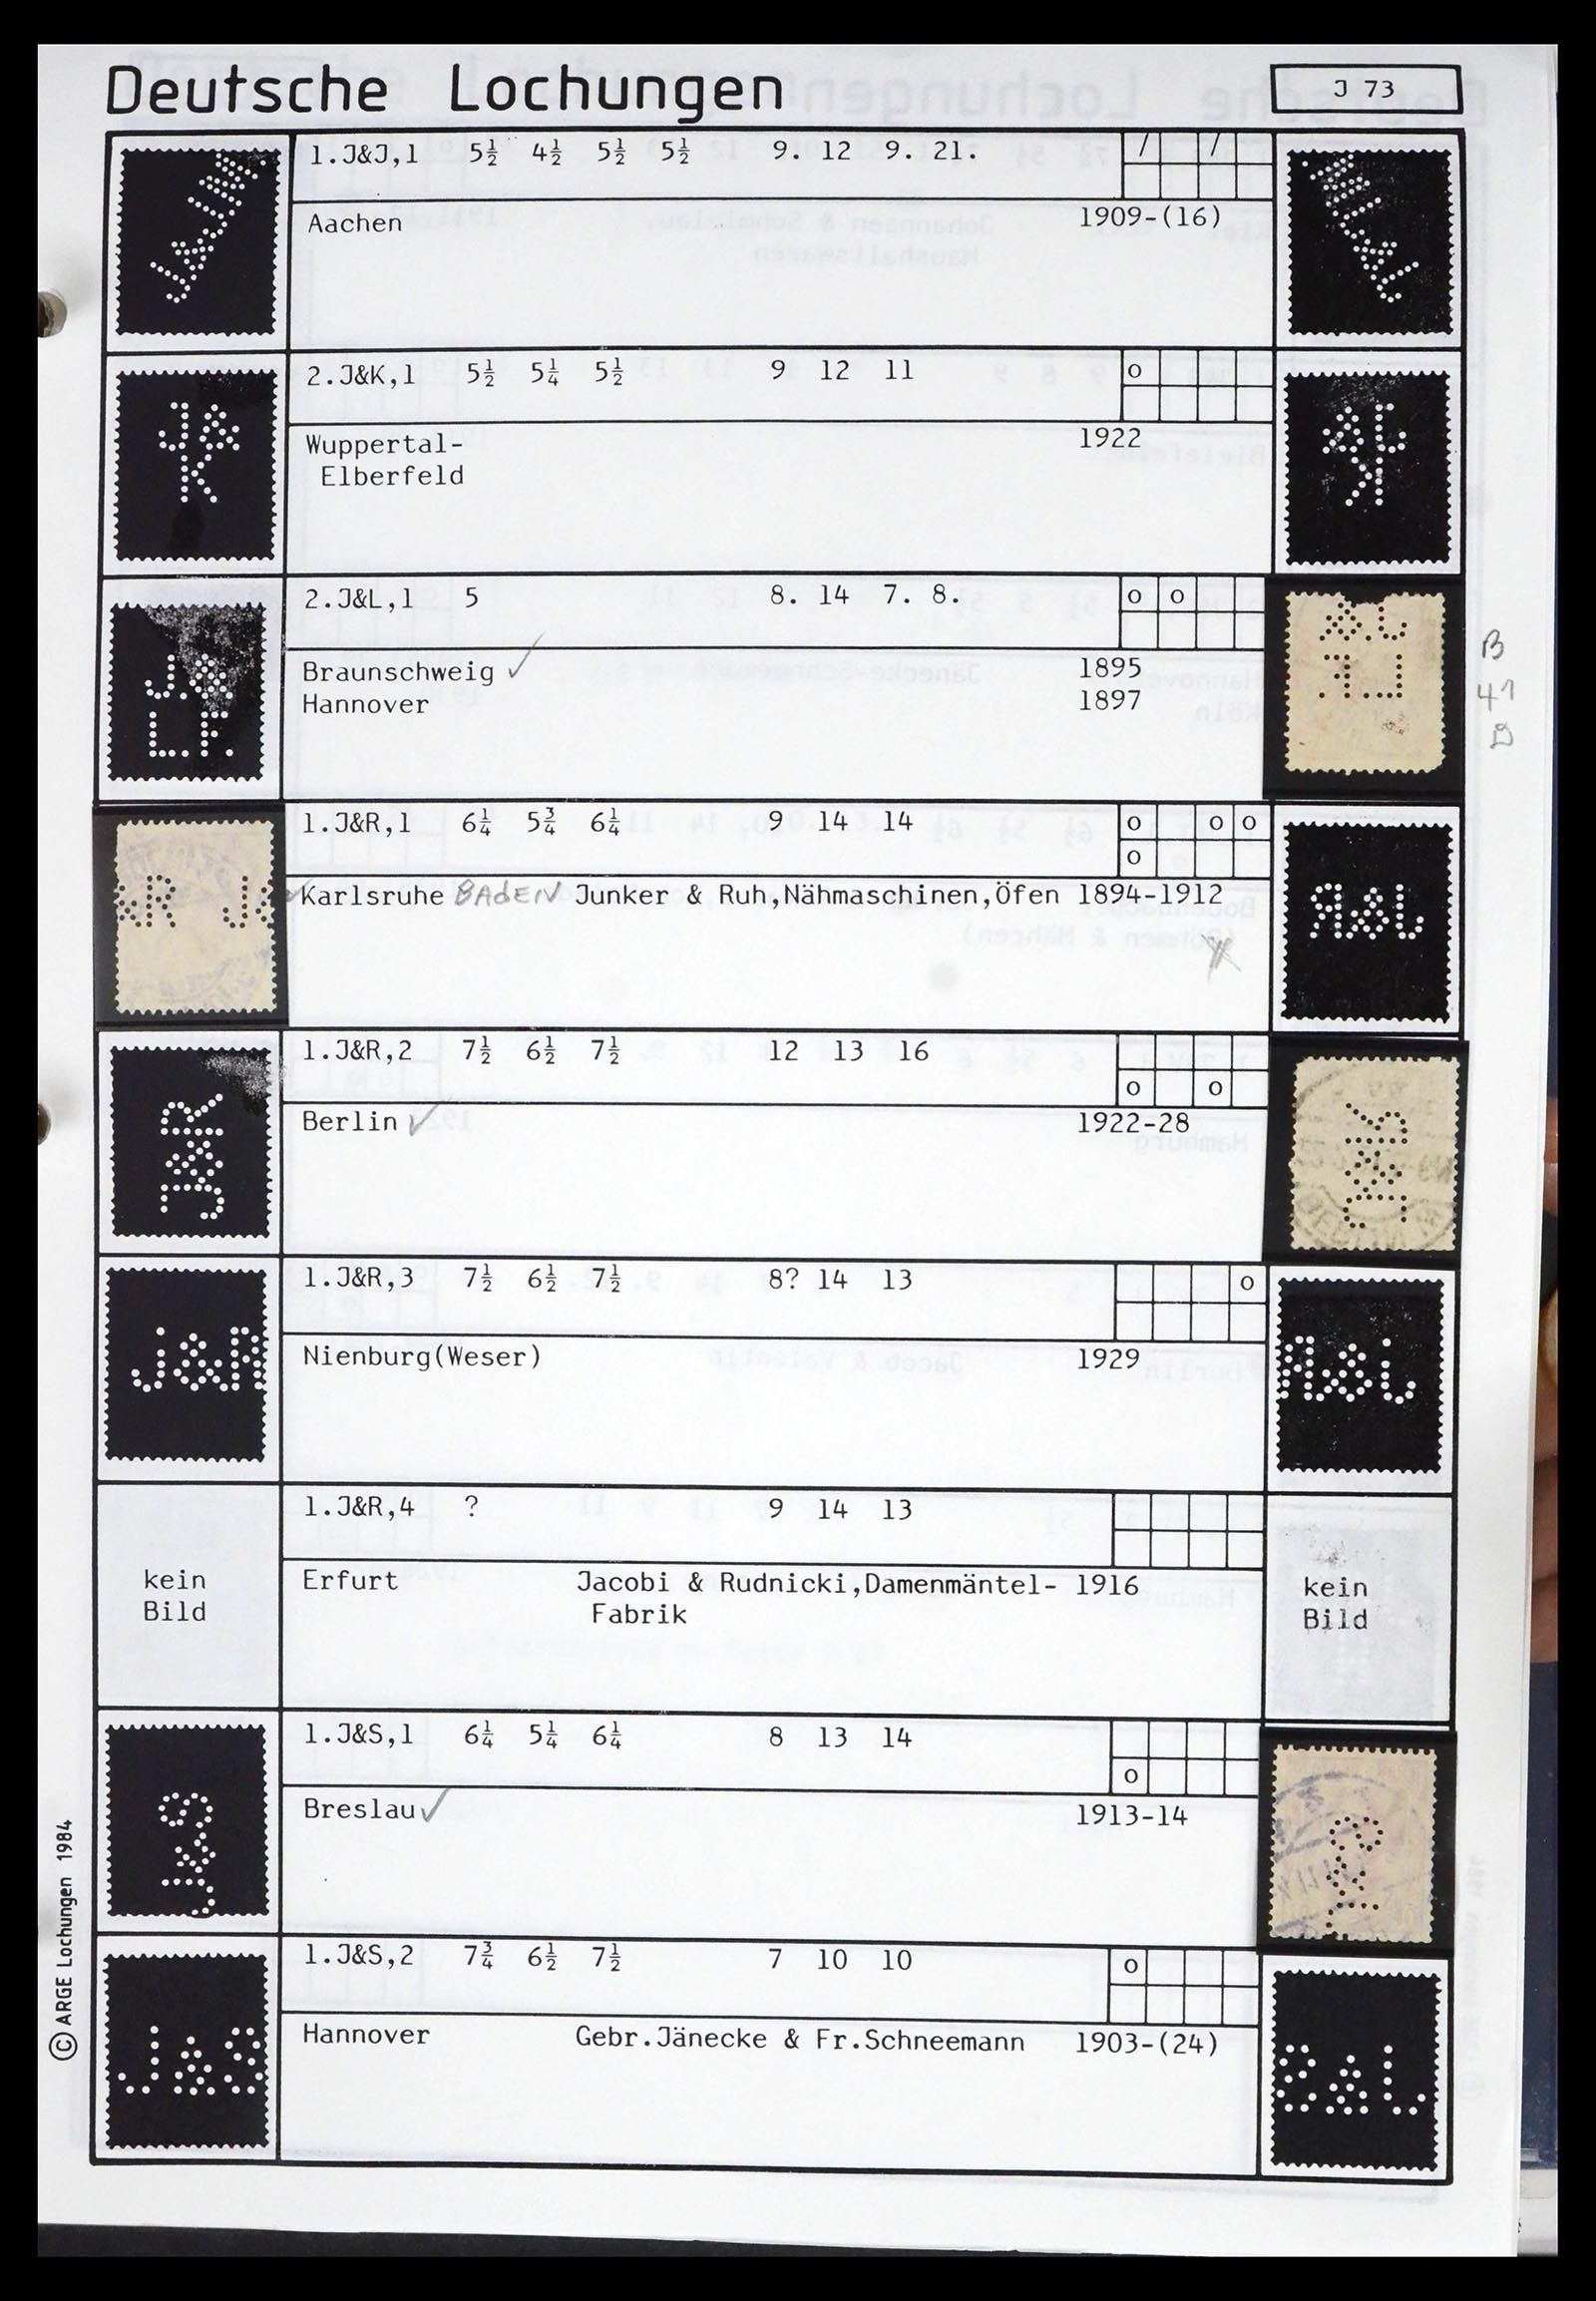 Deutsche Lochungen
J 73
1.J&J,1 5½ 4½ 5½ 5½ 9. 12 9. 21.
Aachen 1909-(16)
2.J&K,1 5½ 5¼ 5½ 9 12 11
o
Wuppertal- 1922
Elberfeld
J&
K
2.J&L,1 5 8. 14 7. 8.
o o
Braunschweig ✓ 1895
Hannover 1897
J.&
L.F.
B
41
1.J&R,1 6¼ 5¾ 6¼ 9 14 14
o o o
o
Karlsruhe BADEN Junker & Ruh,Nähmaschinen,Öfen 1894-1912
&R J&
1.J&R,2 7½ 6½ 7½ 12 13 16
o o
Berlin ✓ 1922-28
J&R
1.J&R,3 7½ 6½ 7½ 8? 14 13
o
Nienburg(Weser) 1929
J&R
1.J&R,4 ? 9 14 13
kein
Bild
Erfurt Jacobi & Rudnicki,Damenmäntel- 1916
Fabrik
kein
Bild
1.J&S,1 6¼ 5¼ 6¼ 8 13 14
o
Breslau ✓ 1913-14
J&S
1.J&S,2 7¾ 6½ 7½ 7 10 10
o
Hannover Gebr.Jänecke & Fr.Schneemann 1903-(24)
J&S
© ARGE Lochungen 1984